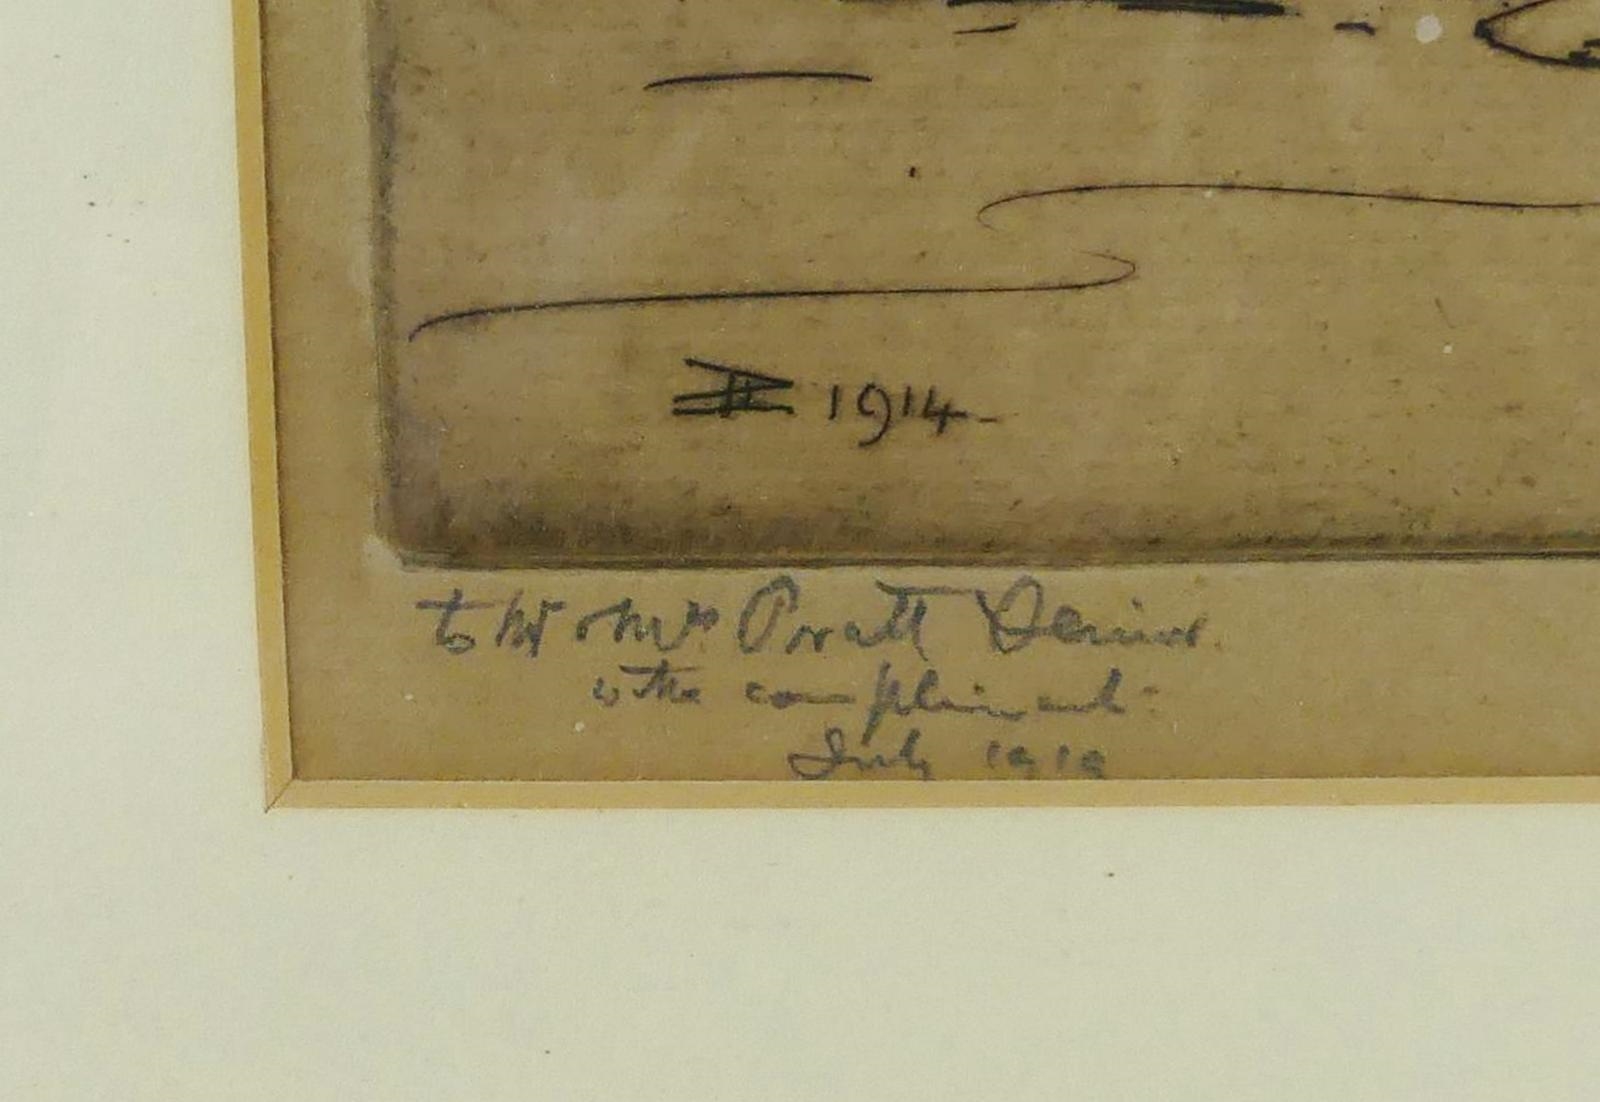 1914
to Mr & Mrs Pratt Senior.
with compliments
July 1919